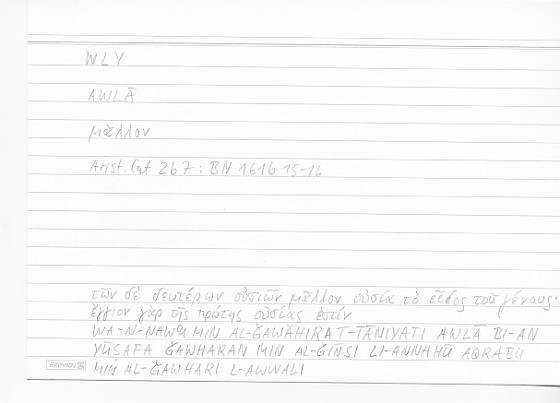 WLY
AWLĀ
μᾶλλον
Arist. Cat 2b7: BN 161b 15-16
τῶν δὲ δευτέρων οὐσιῶν μᾶλλον οὐσία τὸ εἶδος τοῦ γένους·
ἔγγιον γὰρ τῆς πρώτης οὐσίας ἐστίν
WA-N-NAWʿU MIN AL-ǦAWĀHIRA T-TĀNIYATI AWLĀ BI-AN
YŪSAFA ǦAWHARAN MIN AL-ǦINSI LI-ANNAHŪ AQRABU
MIN AL-ǦAWHARI L-AWWALI